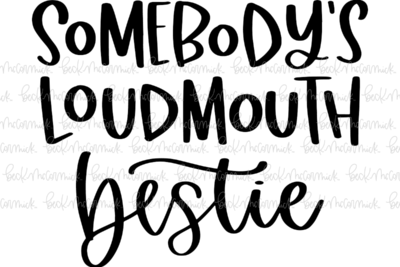 SOMEBODY'S
LOUDMOUTH
bestie